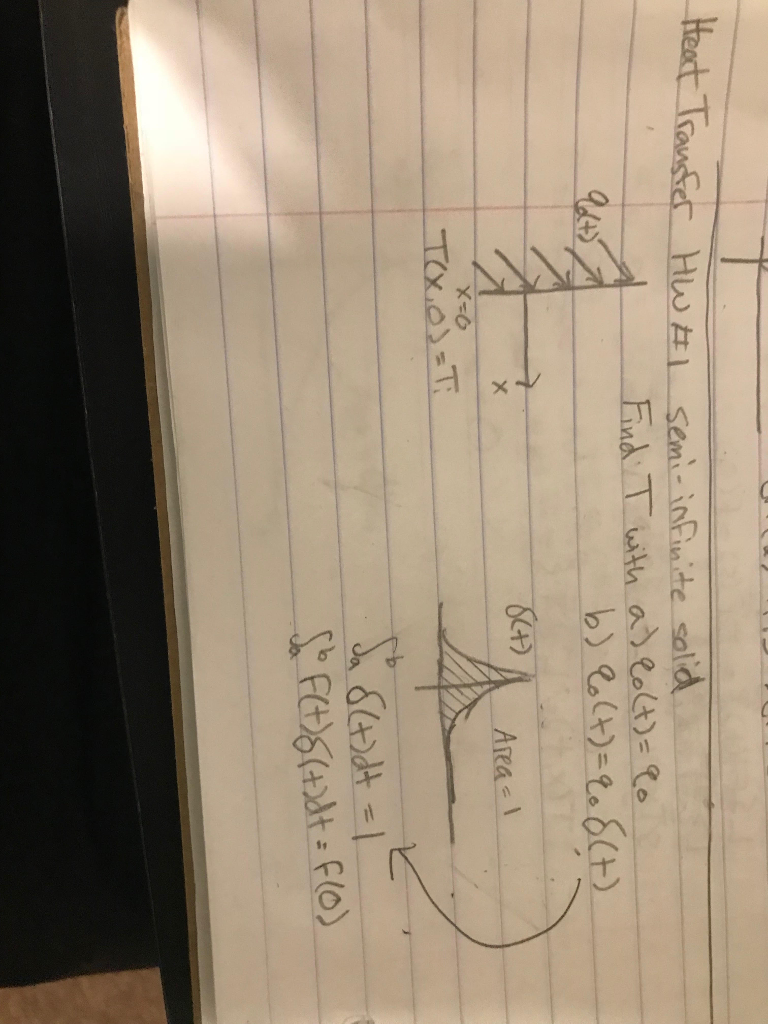 Heat Transfer HW #1 semi-infinite solid
Find: T with a) q₀(t) = q₀
b) q₀(t) = q₀ δ(t)
q₀(t)
x
x=0
T(x,0) = Tᵢ
δ(t)
Area = 1
∫ₐᵇ δ(t)dt = 1
∫ₐᵇ f(t)δ(t)dt = f(0)